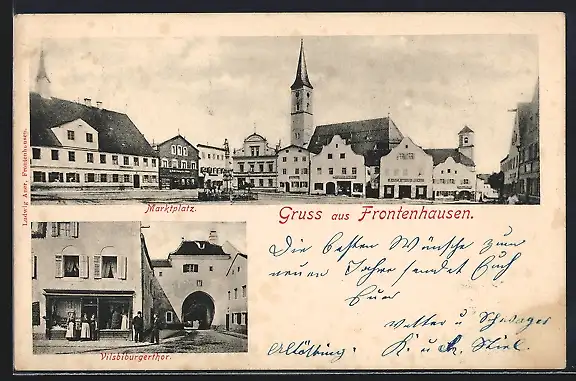 Ludwig Auer, Frontenhausen.
Marktplatz.
Gruss aus Frontenhausen.
Vilsbiburgerthor.
Die besten Wünsche zum
neuen Jahre sendet Euch
Euer
Vetter u. Schwager
Altötting.
K. u.